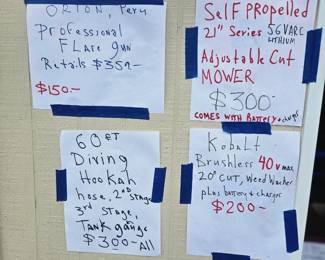 ORION, Peru
Professional
FLare gun
Retails $359-
$150.-
Self Propelled
21" Series 56V ARC
LITHIUM
Adjustable Cut
MOWER
$300-
COMES WITH BATTERY +
60 FT
Diving
Hookah
hose, 2ND Stage
3rd Stage,
Tank gauge
$300-All
Kobalt
Brushless 40V max
20" CUT, Weed Wacker
plus battery + charger
$200-